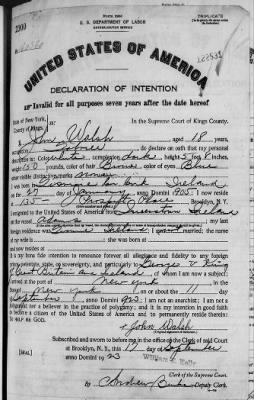 TRIPLICATE
U. S. DEPARTMENT OF LABOR
NATURALIZATION SERVICE
UNITED STATES OF AMERICA
DECLARATION OF INTENTION
Invalid for all purposes seven years after the date hereof
State of New York,
County of Kings,
In the Supreme Court of Kings County.
I, John Walsh, aged 18 years,
occupation Laborer, do declare on oath that my personal
description is: Color White, complexion dark, height 5 feet 8 inches,
weight 150 pounds, color of hair Brown, color of eyes Blue
other visible distinctive marks none
I was born in Ireland
on the day of January, anno Domini 1905; I now reside
at 135 Place, Brooklyn, N.Y.
I emigrated to the United States of America from Queenstown Ireland
on the vessel; my last
foreign residence was Ireland; I am not married; the name
of my wife is; she was born at
and now resides at
It is my bona fide intention to renounce forever all allegiance and fidelity to any foreign
prince, potentate, state, or sovereignty, and particularly to George V King
of Great Britain and Ireland, of whom I am now a subject;
I arrived at the port of New York, in the
of New York, on or about the 11 day
of September, anno Domini 1923; I am not an anarchist; I am not a
polygamist nor a believer in the practice of polygamy; and it is my intention in good faith
to become a citizen of the United States of America and to permanently reside therein:
SO HELP ME GOD.
John Walsh
Subscribed and sworn to before me in the office of the Clerk of said Court
at Brooklyn, N.Y., this 17 day of September
anno Domini 1923
[SEAL]
William E. Kelly
Clerk of the Supreme Court.
By Andrew, Deputy Clerk.